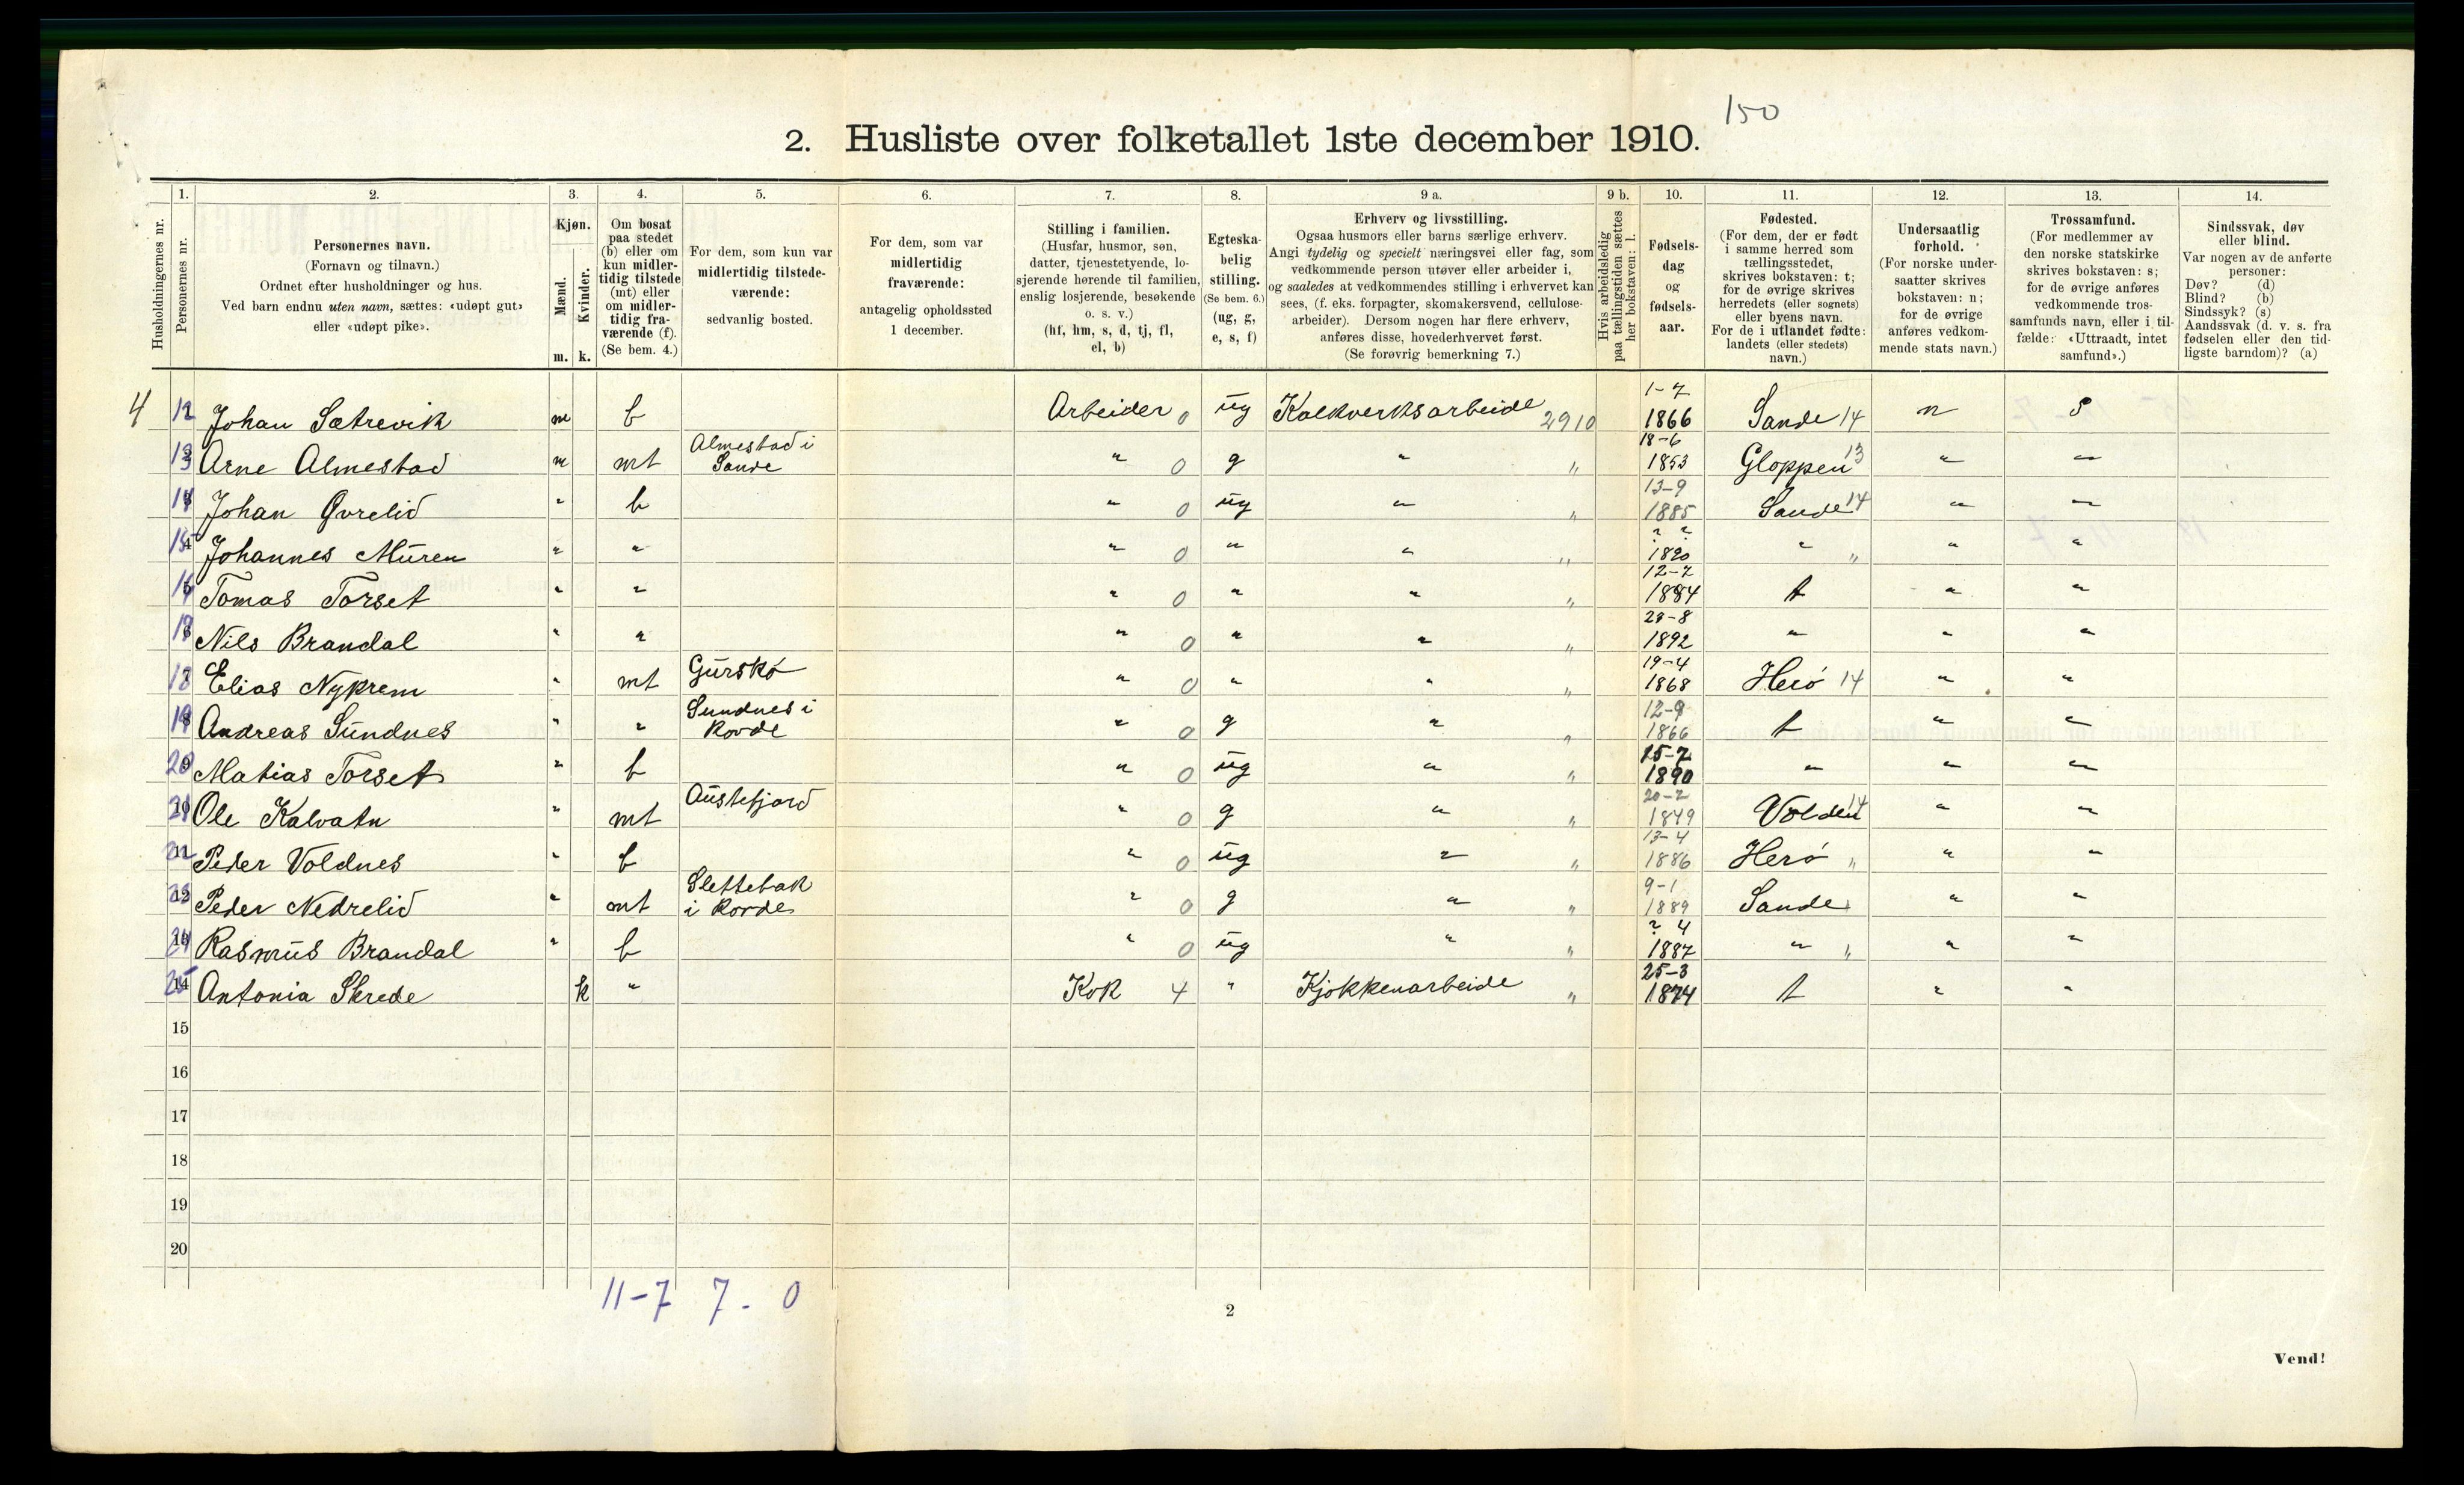 150
2. Husliste over folketallet 1ste december 1910.
Husholdningernes nr.
1. Personernes nr.
2. Personernes navn. (Fornavn og tilnavn.) Ordnet efter husholdninger og hus. Ved barn endnu uten navn, sættes: «udøpt gut» eller «udøpt pike».
3. Kjøn. Mænd. m. Kvinder. k.
4. Om bosat paa stedet (b) eller om kun midlertidig tilstede (mt) eller om midlertidig fraværende (f). (Se bem. 4.)
5. For dem, som kun var midlertidig tilstedeværende: sedvanlig bosted.
6. For dem, som var midlertidig fraværende: antagelig opholdssted 1 december.
7. Stilling i familien. (Husfar, husmor, søn, datter, tjenestetyende, losjerende hørende til familien, enslig losjerende, besøkende o. s. v.) (hf, hm, s, d, tj, fl, el, b)
8. Egteskabelig stilling. (Se bem. 6.) (ug, g, e, s, f)
9 a. Erhverv og livsstilling. Ogsaa husmors eller barns særlige erhverv. Angi tydelig og specielt næringsvei eller fag, som vedkommende person utøver eller arbeider i, og saaledes at vedkommendes stilling i erhvervet kan sees, (f. eks. forpagter, skomakersvend, cellulosearbeider). Dersom nogen har flere erhverv, anføres disse, hovederhvervet først. (Se forøvrig bemerkning 7.)
9 b. Hvis arbeidsledig paa tællingstiden sættes her bokstaven: l.
10. Fødselsdag og fødselsaar.
11. Fødested. (For dem, der er født i samme herred som tællingsstedet, skrives bokstaven: t; for de øvrige skrives herredets (eller sognets) eller byens navn. For de i utlandet fødte: landets (eller stedets) navn.)
12. Undersaatlig forhold. (For norske undersaatter skrives bokstaven: n; for de øvrige anføres vedkommende stats navn.)
13. Trossamfund. (For medlemmer av den norske statskirke skrives bokstaven: s; for de øvrige anføres vedkommende trossamfunds navn, eller i tilfælde: «Uttraadt, intet samfund».)
14. Sindssvak, døv eller blind. Var nogen av de anførte personer: Døv? (d) Blind? (b) Sindssyk? (s) Aandssvak (d. v. s. fra fødselen eller den tidligste barndom)? (a)
4 12 Johan Sætrevik m b Arbeider 0 ug Kalkverksarbeide 2910 1-7 1866 Sande 14 n s
13 Arne Almestad m mt Almestad i Sande " 0 g " " 18-6 1853 Gloppen 13 " "
14 Johan Øvrelid " b " 0 ug " " 13-9 1885 Sande 14 " "
15 Johannes Muren " " " 0 " " " ? ? 1890 " " " "
16 Tomas Torset " " " 0 " " " 12-7 1884 t " "
Nils Brandal " " " 0 " " " 28-8 1892 " " "
18 Elias Nykrem " mt Gurskø " 0 " " " 19-4 1868 Herø 14 " "
19 Andreas Sundnes " " Sundnes i Rovde " 0 g " " 12-9 1866 t " "
20 Matias Torset " b " 0 ug " " 15-7 1890 " " "
21 Ole Kalvatn " mt Austefjord " 0 g " " 20-2 1849 Volden 14 " "
22 Peder Voldnes " b " 0 ug " " 13-4 1886 Herø " " "
23 Peder Nedrelid " mt Slettebak i Rovde " 0 g " " 9-1 1889 Sande " "
24 Rasmus Brandal " b " 0 ug " " ? 4 1887 " " " "
25 Antonia Skrede k " Kok 4 " Kjøkkenarbeide " 25-3 1874 t " "
15
16
17
18
19
20
11-7 7 - 0
2
Vend!